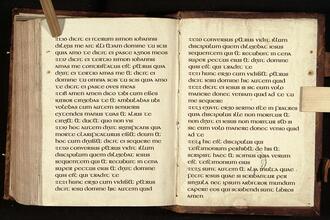 dicit ei iterum simon iohannis
diligis me ait illi etiam domine tu scis
quia amo te dicit ei pasce agnos meos
dicit ei tertio simon iohannis
amas me contristatus est petrus quia
dixit ei tertio amas me et dicit ei
domine tu omnia scis tu scis quia amo
te dicit ei pasce oves meas
amen amen dico tibi cum esses
iunior cingebas te et ambulabas ubi
volebas cum autem senueris
extendes manus tuas et alius te
cinget et ducet quo non vis
hoc autem dixit significans qua
morte clarificaturus esset deum et
hoc cum dixisset dicit ei sequere me
conversus petrus vidit illum
discipulum quem diligebat iesus
sequentem qui et recubuit in cena
super pectus eius et dixit domine
quis est qui tradit te
hunc ergo cum vidisset petrus
dicit iesu domine hic autem quid
conversus petrus vidit illum
discipulum quem diligebat iesus
sequentem qui et recubuit in cena
super pectus eius et dixit domine
quis est qui tradit te
hunc ergo cum vidisset petrus
dicit iesu domine hic autem quid
dicit ei iesus si eum volo
manere donec veniam quid ad te
me sequere
exivit ergo sermo iste in fratres
quia discipulus ille non moritur et
non dixit ei iesus non moritur sed si
sic eum volo manere donec venio quid
ad te
hic est discipulus qui
testimonium perhibet de his et
scripsit haec et scimus quia verum
est testimonium eius
sunt autem et alia multa quae
fecit iesus quae si scribantur per
singula nec ipsum arbitror mundum
capere eos qui scribendi sunt libros
amen